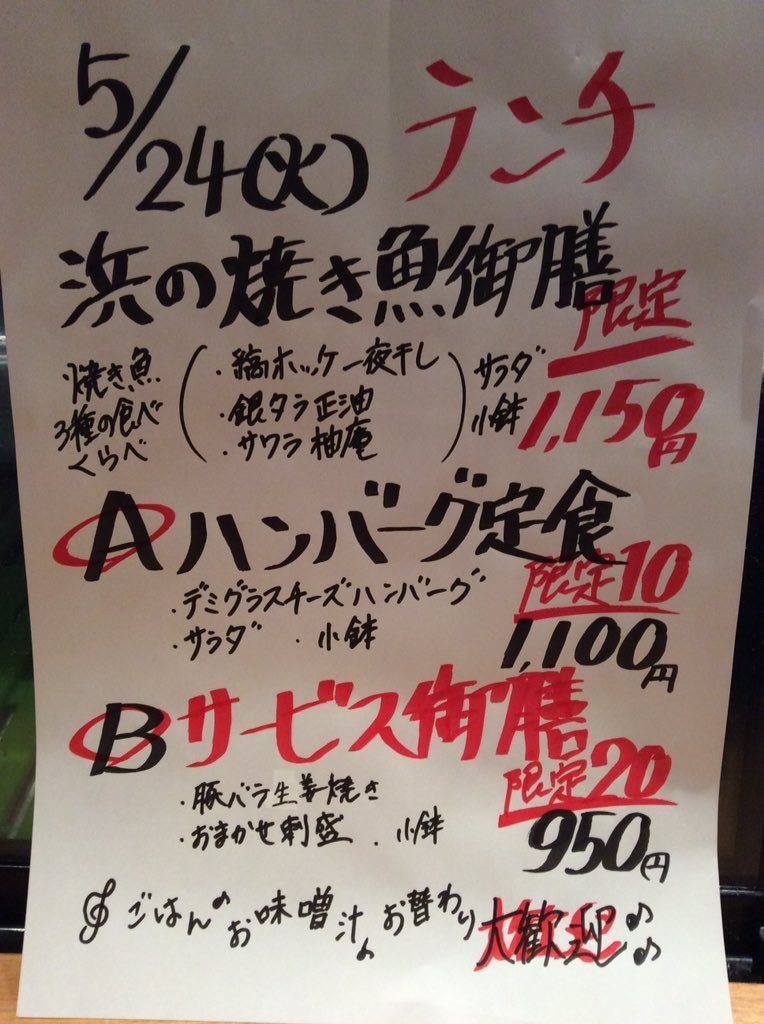 5/24(火) ランチ
浜の焼き魚御膳
限定
焼き魚
3種の食べ
くらべ
・縞ホッケ一夜干し
・銀タラ正油
・サワラ柚庵
サラダ
小鉢
1,150円
Aハンバーグ定食
限定10
・デミグラスチーズハンバーグ
・サラダ ・小鉢
1,100円
Bサービス御膳
限定20
・豚バラ生姜焼き
・おまかせ刺盛 ・小鉢
950円
ごはん♪お味噌汁♪お替わり大歓迎♪♪